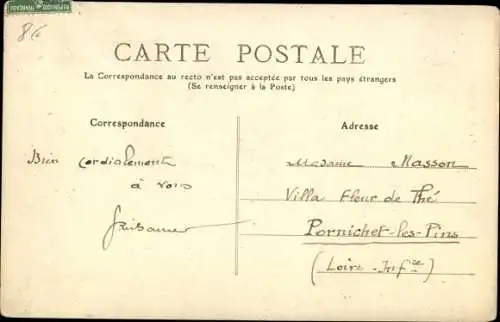 REPUBLIQUE FRANÇAISE
8€
CARTE POSTALE
La Correspondance au recto n'est pas acceptée par tous les pays étrangers
(Se renseigner à la Poste)
Correspondance
Bien cordialement
à vous
Adresse
Madame Masson
Villa Fleur de Thé
Pornichet-les-Pins
(Loire-Infre)